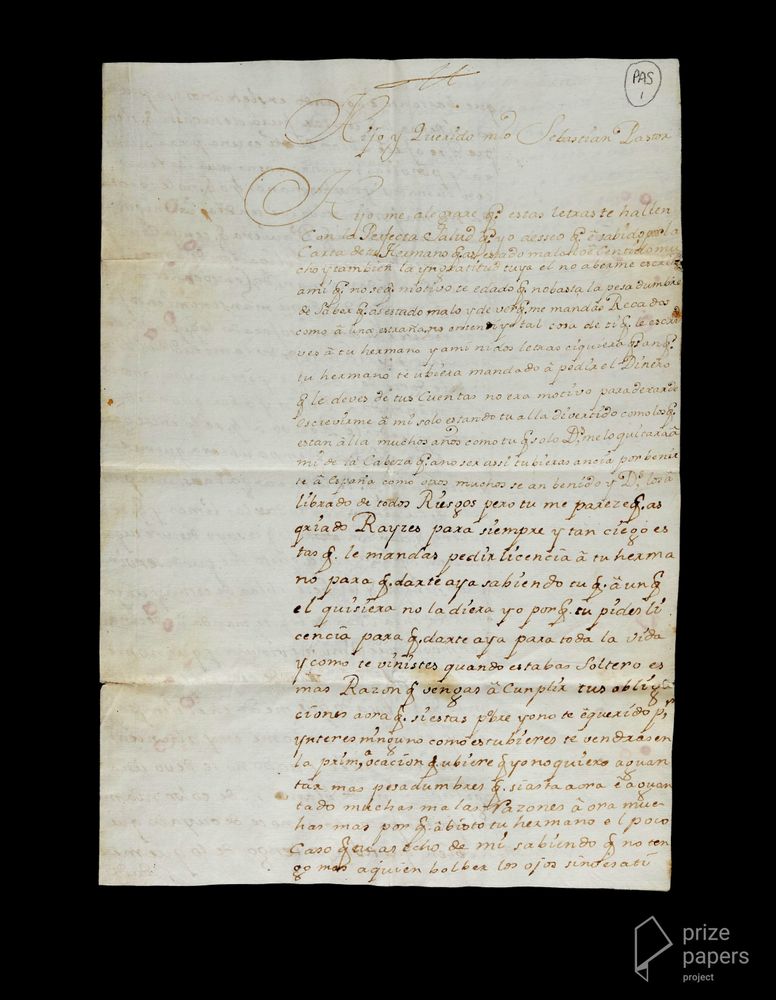 PAS
1
Hijo y Querido mio Sebastian Pastor
Hijo me alegrare q.e estas letras te hallen
Con la Perfecta Salud q.e yo desseo q.e ê sabido por la
Carta de tu Hermano q.e as estado malo lo ê Sentido mu
cho y tambien la yngratitud tuya el no aberme escrito
ami q.e no se q.e motivo te e dado q.e no basta la pesadumbre
de saber q.e as estado malo y de ver q.e me mandas Recados
como â una estraña, no entendi yo tal cosa de ti q.e le escri
ves â tu hermano y ami ni dos letras ciquiera q.e an q.e
tu hermano te ubiera mandado â pedir el Dinero
q.e le deves de tus Cuentas no era motivo para dejar de
escrevirme â mi solo estando tu alla divertido como los q.e
estan âlla muchos años como tu q.e solo D.s me lo quitara â
mi de la Cabeza q.e a no ser assi tubieras ancia por benir
te â España como otros muchos se an benido y D.s los a
librado de todos Riesgos pero tu me pareze q.e as
criado Rayzes para siempre y tan ciego es
tas q.e le mandas pedir licencia â tu herma
no para q.darte aya sabiendo tu q.e âunq.e
el quisiera no la diera yo porq.e tu pides li
cencia para q.darte aya para toda la vida
y como te vinistes quando estabas Soltero es
mas Razon q.e vengas â Cunplir tus obliga
ciones aora q.e si estas pobre yo no te e querido p.r
ynteres ninguno como estubieres te vendras en
la prim.a ocacion q.e ubiere q.e yo no quiero aguan
tar mas pesadumbres q.e si asta aora ê aguan
tado muchas malas Razones â ora mu
chas mas por q.e â bisto tu hermano el poco
Caso q.e tu as echo de mi sabiendo q.e no ten
go mas a quien bolber los ojos sino es a ti
prize
papers
project